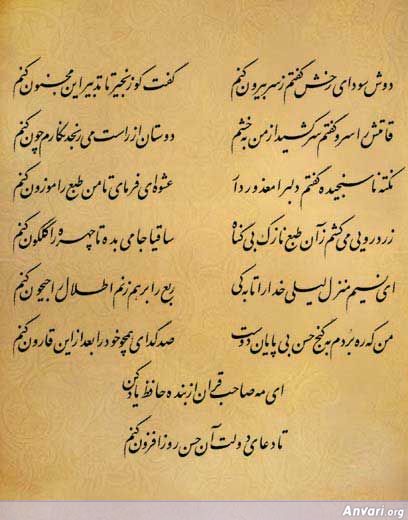 دوش سودای رخش گفتم ز سر بیرون کنم گفت کو زنجیر تا تدبیر این مجنون کنم
قامتش را سرو گفتم سر کشید از من به خشم دوستان از راست می رنجد نگارم چون کنم
نکته ناسنجیده گفتم دلبرا معذور دار عشوه ای فرمای تا من طبع را موزون کنم
زردرویی می کشم زآن طبع نازک بی گناه ساقیا جامی بده تا چهره را گلگون کنم
ای نسیم منزل لیلی خدا را تا به کی ربع را برهم زنم اطلال را جیحون کنم
من که ره بردم به گنج حسن بی پایان دوست صد گدای همچو خود را بعد از این قارون کنم
ای مه صاحب قران از بنده حافظ یاد کن
تا دعای دولت آن حسن روز افزون کنم
Anvari.org